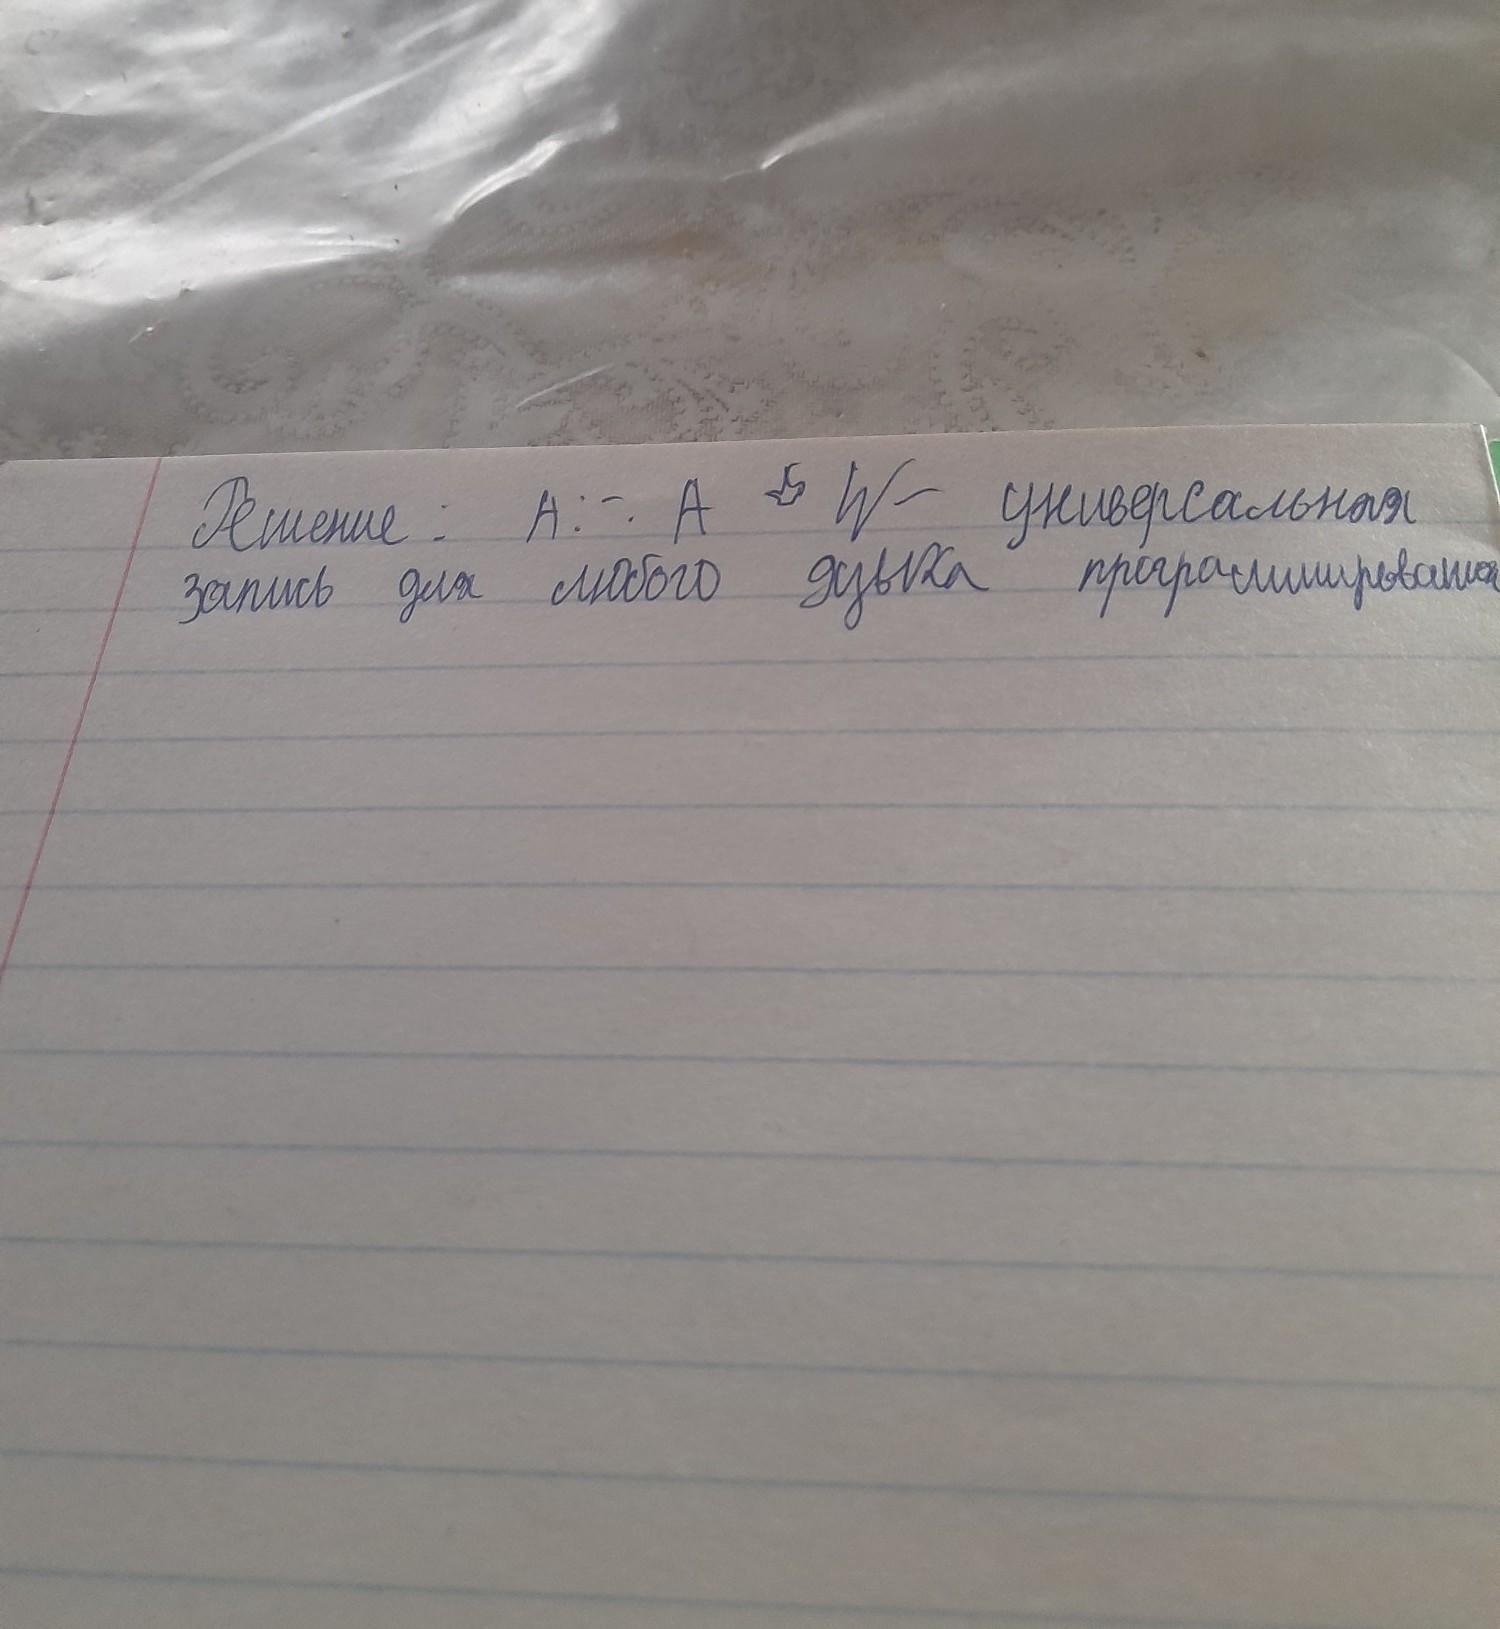 Решение: A ∴ A ⇩ W – универсальная
запись для любого языка программирования